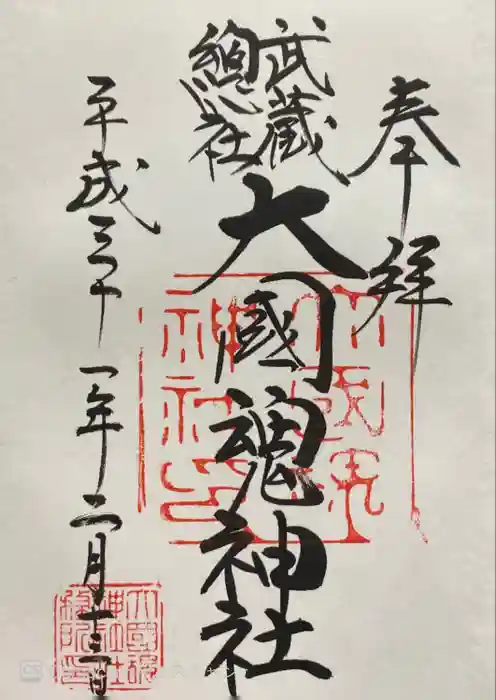 奉拝
武蔵
總社
大國魂神社
平成三十一年二月十三日
大國魂
神社印
大國魂
神社社
務所印